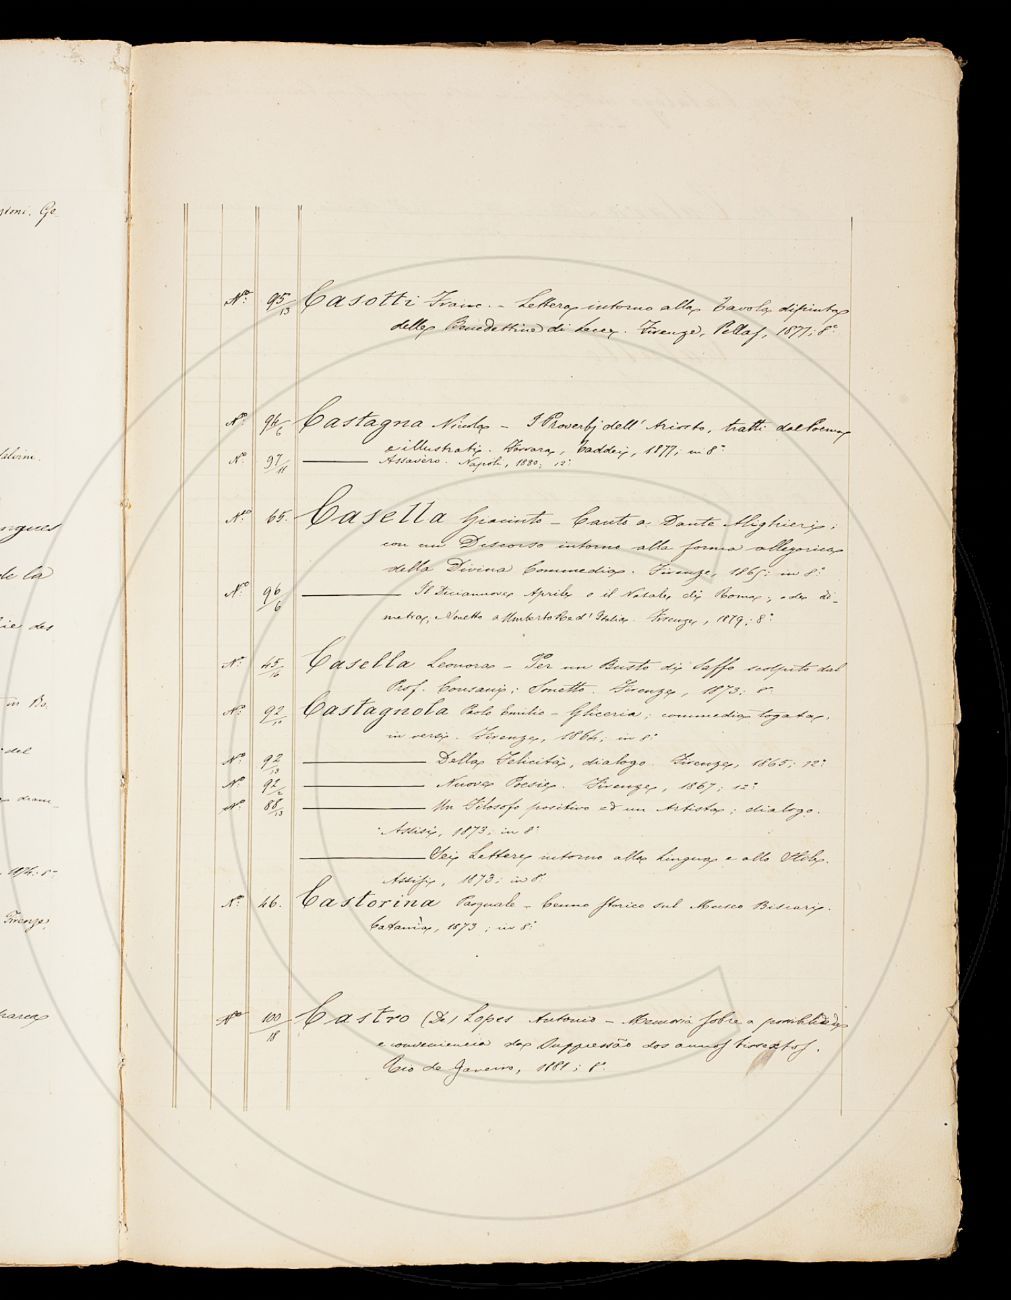 N.º 95/13 Casotti Franc. - Lettera intorno alla Tavola dipinta
delle Benedettine di Lecce. Firenze, Pellas, 1877; 8.º
N.º 94/6 Castagna Nicola - I Proverbj dell' Ariosto, tratti dal Poema
e illustrati. Ferrara, Taddei, 1877; in 8.º
N.º 97/11 ——— Assavero. Napoli, 1880; 12.º
N.º 65. Casella Giacinto - Canto a Dante Alighieri;
con un Discorso intorno alla forma allegorica
della Divina Commedia. Firenze, 1865; in 8.º
N.º 96/6 ——— Il Diciannove Aprile e il Natale di Roma; ode
e Sonetto a Umberto Re d' Italia. Firenze, 1879; 8.º
N.º 45/16 Casella Leonora - Per un Busto di Saffo scolpito dal
Prof. Consani; Sonetto. Firenze, 1873; 8.º
N.º 92/11 Castagnola Paolo Emilio - Gliceria; commedia togata,
in versi. Firenze, 1864; in 8.º
N.º 92/13 ——— Della Felicità, dialogo. Firenze, 1865; 12.º
N.º 92/ ——— Nuove Poesie. Firenze, 1867; 12.º
N.º 88/13 ——— Un Filosofo positivo ed un Artista; dialogo.
Assisi, 1873; in 8.º
——— Sei Lettere intorno alla Lingua e allo Stile.
Assisi, 1873; in 8.º
N.º 46. Castorina Pasquale - Cenno storico sul Museo Biscari.
Catania, 1873; in 8.º
N.º 100/18 Castro (De) Lopes Antonio - Memoria sobre a possibilidade
e conveniencia da Suppressão dos annos bissextos.
Rio de Janeiro, 1881; 8.º